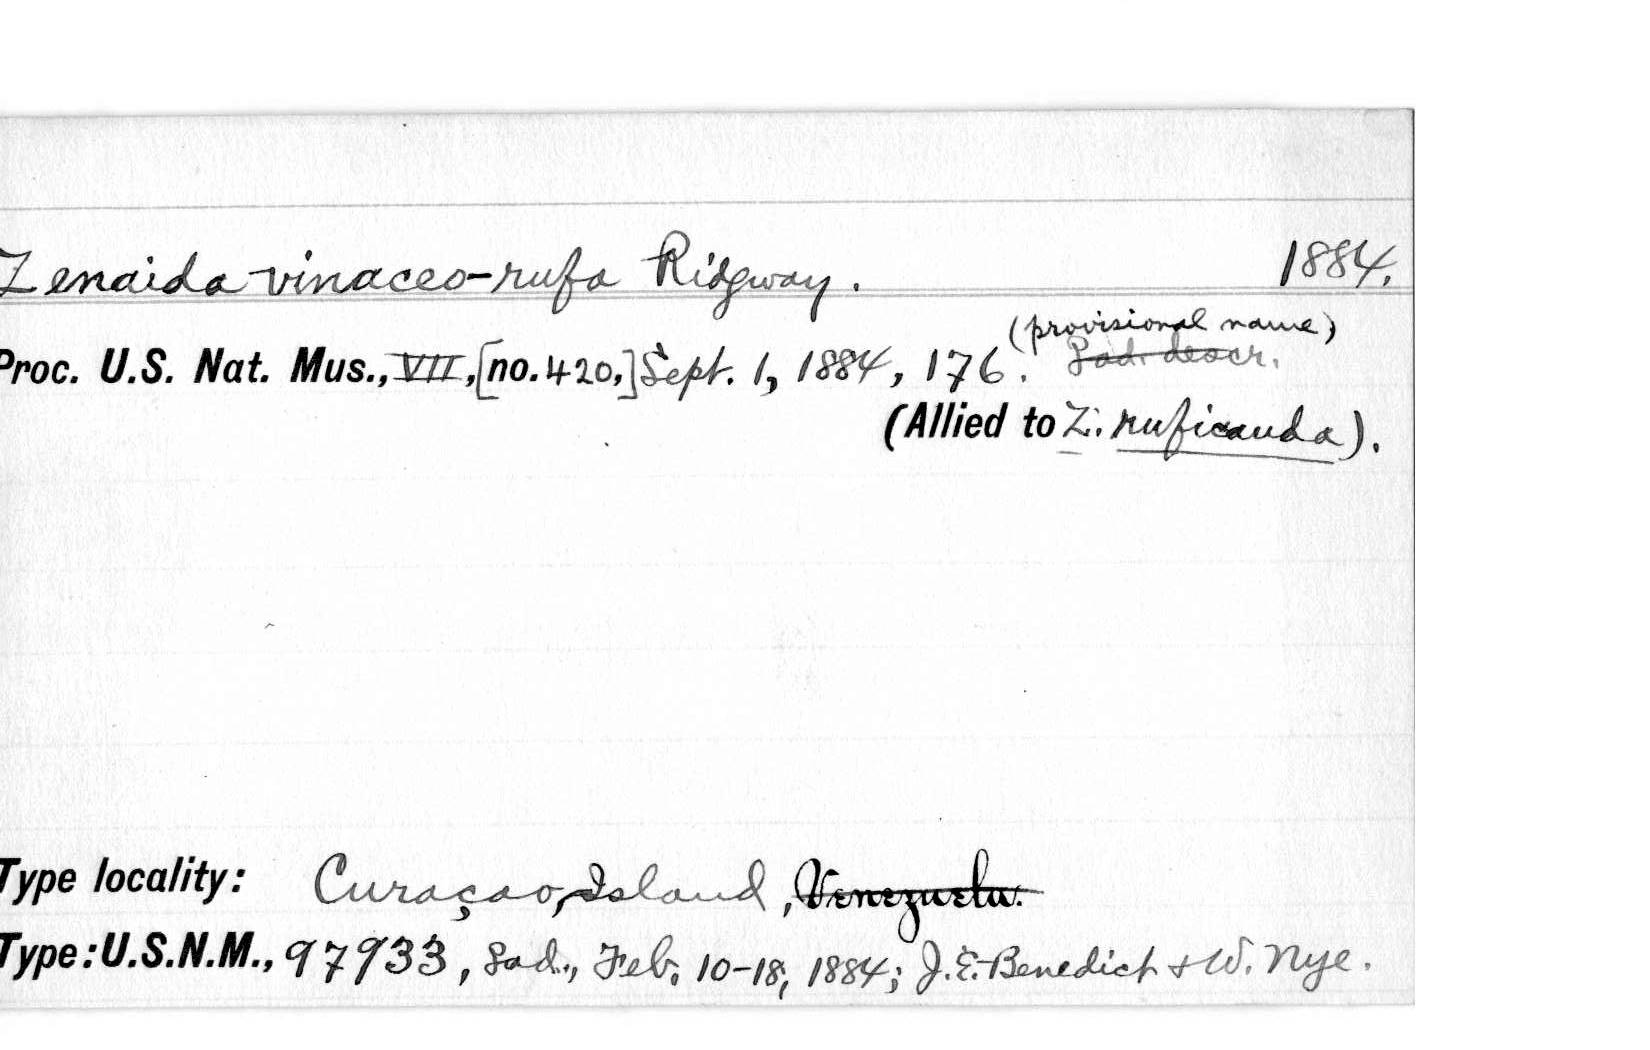 Zenaida vinaceo-rufa Ridgway. 1884.
(provisional name)
Proc. U.S. Nat. Mus., VII, [no. 420,] Sept. 1, 1884, 176. ♀ad. descr.
(Allied to Z. ruficauda).
Type locality: Curaçao, Island, Venezuela.
Type: U.S.N.M., 97933, ♀ad., Feb. 10-18, 1884; J.E. Benedict & W. Nye.